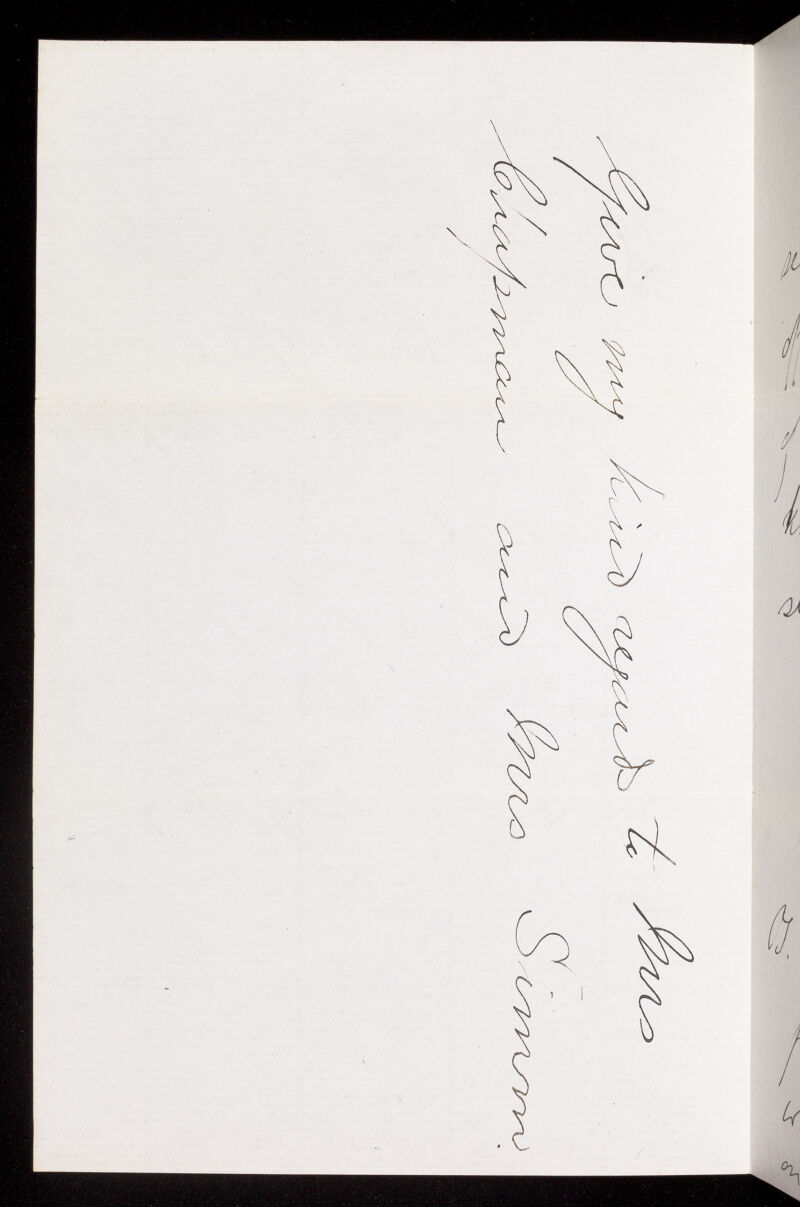 Give my kind regards to Mrs
Chapman and Mrs Simom.